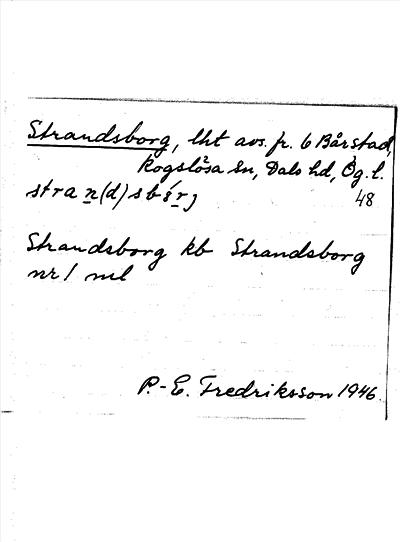 Strandsborg, lht avs. fr. 6 Bårstad,
Rogslösa sn, Dals hd, Ög. l.
stran(d)sbórj 48
Strandsborg kb Strandsborg
nr 1 ml
P.-E. Fredriksson 1946.